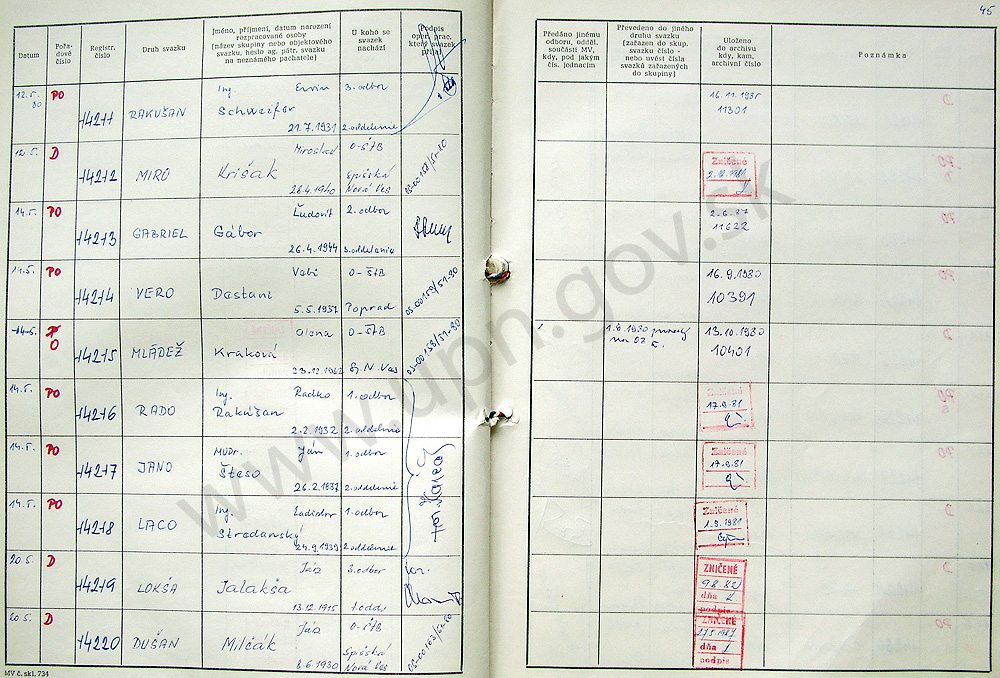 45
Datum
Pořa-
dové
číslo
Registr.
číslo
Druh svazku
Jméno, příjmení, datum narození
rozpracované osoby
(název skupiny nebo objektového
svazku, heslo ag. pátr. svazku
na neznámého pachatele)
U koho se
svazek
nachází
Podpis
oper. prac.
který svazek
přijal
Předáno jinému
odboru, odděl.
součásti MV,
kdy, pod jakým
čís. jednacím
Převedeno do jiného
druhu svazku
(zařazen do skup.
svazku číslo -
nebo uvést čísla
svazků zařazených
do skupiny)
Uloženo
do archivu
kdy, kam,
archivní číslo
Poznámka
12.5.
80
PO
14211
RAKUŠAN
Ing. Ervin
21.7.1931
3. odbor
2. oddelenie
16.11.1985
11301
12.5.
D
14212
MIRO
Miroslav
Krišák
26.4.1940
O-ŠTB
Spišská
Nová Ves
OS-00157/51-20
Zničené
14.5.
PO
14213
GABRIEL
Ľudovít
Gábor
26.4.1944
2. odbor
3. oddelenie
2.6.87
11622
14.5.
PO
14214
VERO
Dastani
5.5.1957
O-ŠTB
Poprad
16.9.1980
10391
14.5.
O
14215
MLÁDEŽ
Kraková
23.12.1962
O-ŠTB
Sp. N. Ves
OS-00158/51-20
13.10.1980
10401
14.5.
PO
14216
RADO
Ing. Radko
Rakušan
2.2.1932
1. odbor
2. oddelenie
17.9.81
14.5.
PO
14217
JANO
MVDr. Ján
Šteso
26.2.1937
1. odbor
2. oddelenie
Zničené
17.9.81
14.5.
PO
14218
LACO
Ing. Ladislav
Stredanský
24.9.1939
1. odbor
2. oddelenie
Zničené
1.9.1981
20.5.
D
14219
LOKŠA
Ján
Jalakša
13.12.1915
3. odbor
1. odd.
ZNIČENÉ
9.8.82
dňa
podpis
20.5.
D
14220
DUŠAN
Ján
Milčák
8.6.1930
O-ŠTB
Spišská
Nová Ves
ZNIČENÉ
dňa
podpis
MV č. skl. 734
www.upn.gov.sk